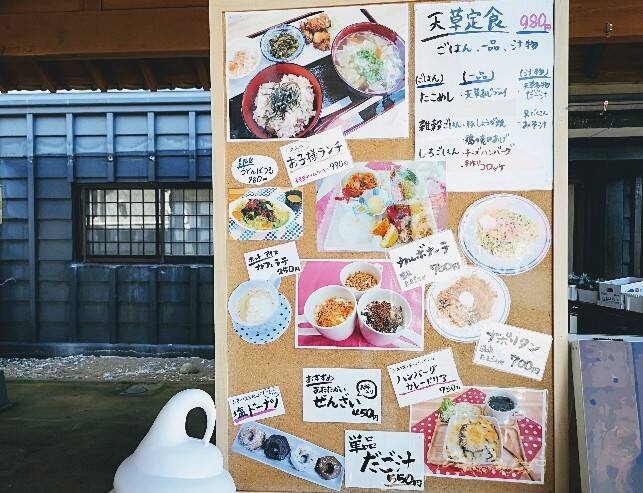 天草定食 980円
ごはん、一品、汁物
(ごはん) (一品) (汁物)
たこめし
・天草
だご汁
雑穀ごはん ・豚しょうが焼
みそ汁
・鶏の唐あげ
しろごはん ・チーズハンバーグ
・手作りコロッケ
お子様ランチ
980円
980円
カルボナーラ
700円
カフェラテ
250円
ナポリタン
700円
ハンバーグ
カレードリア
950円
おすすめ
あたたかい
ぜんざい
450円
塩ドーナツ
単品
だご汁
550円